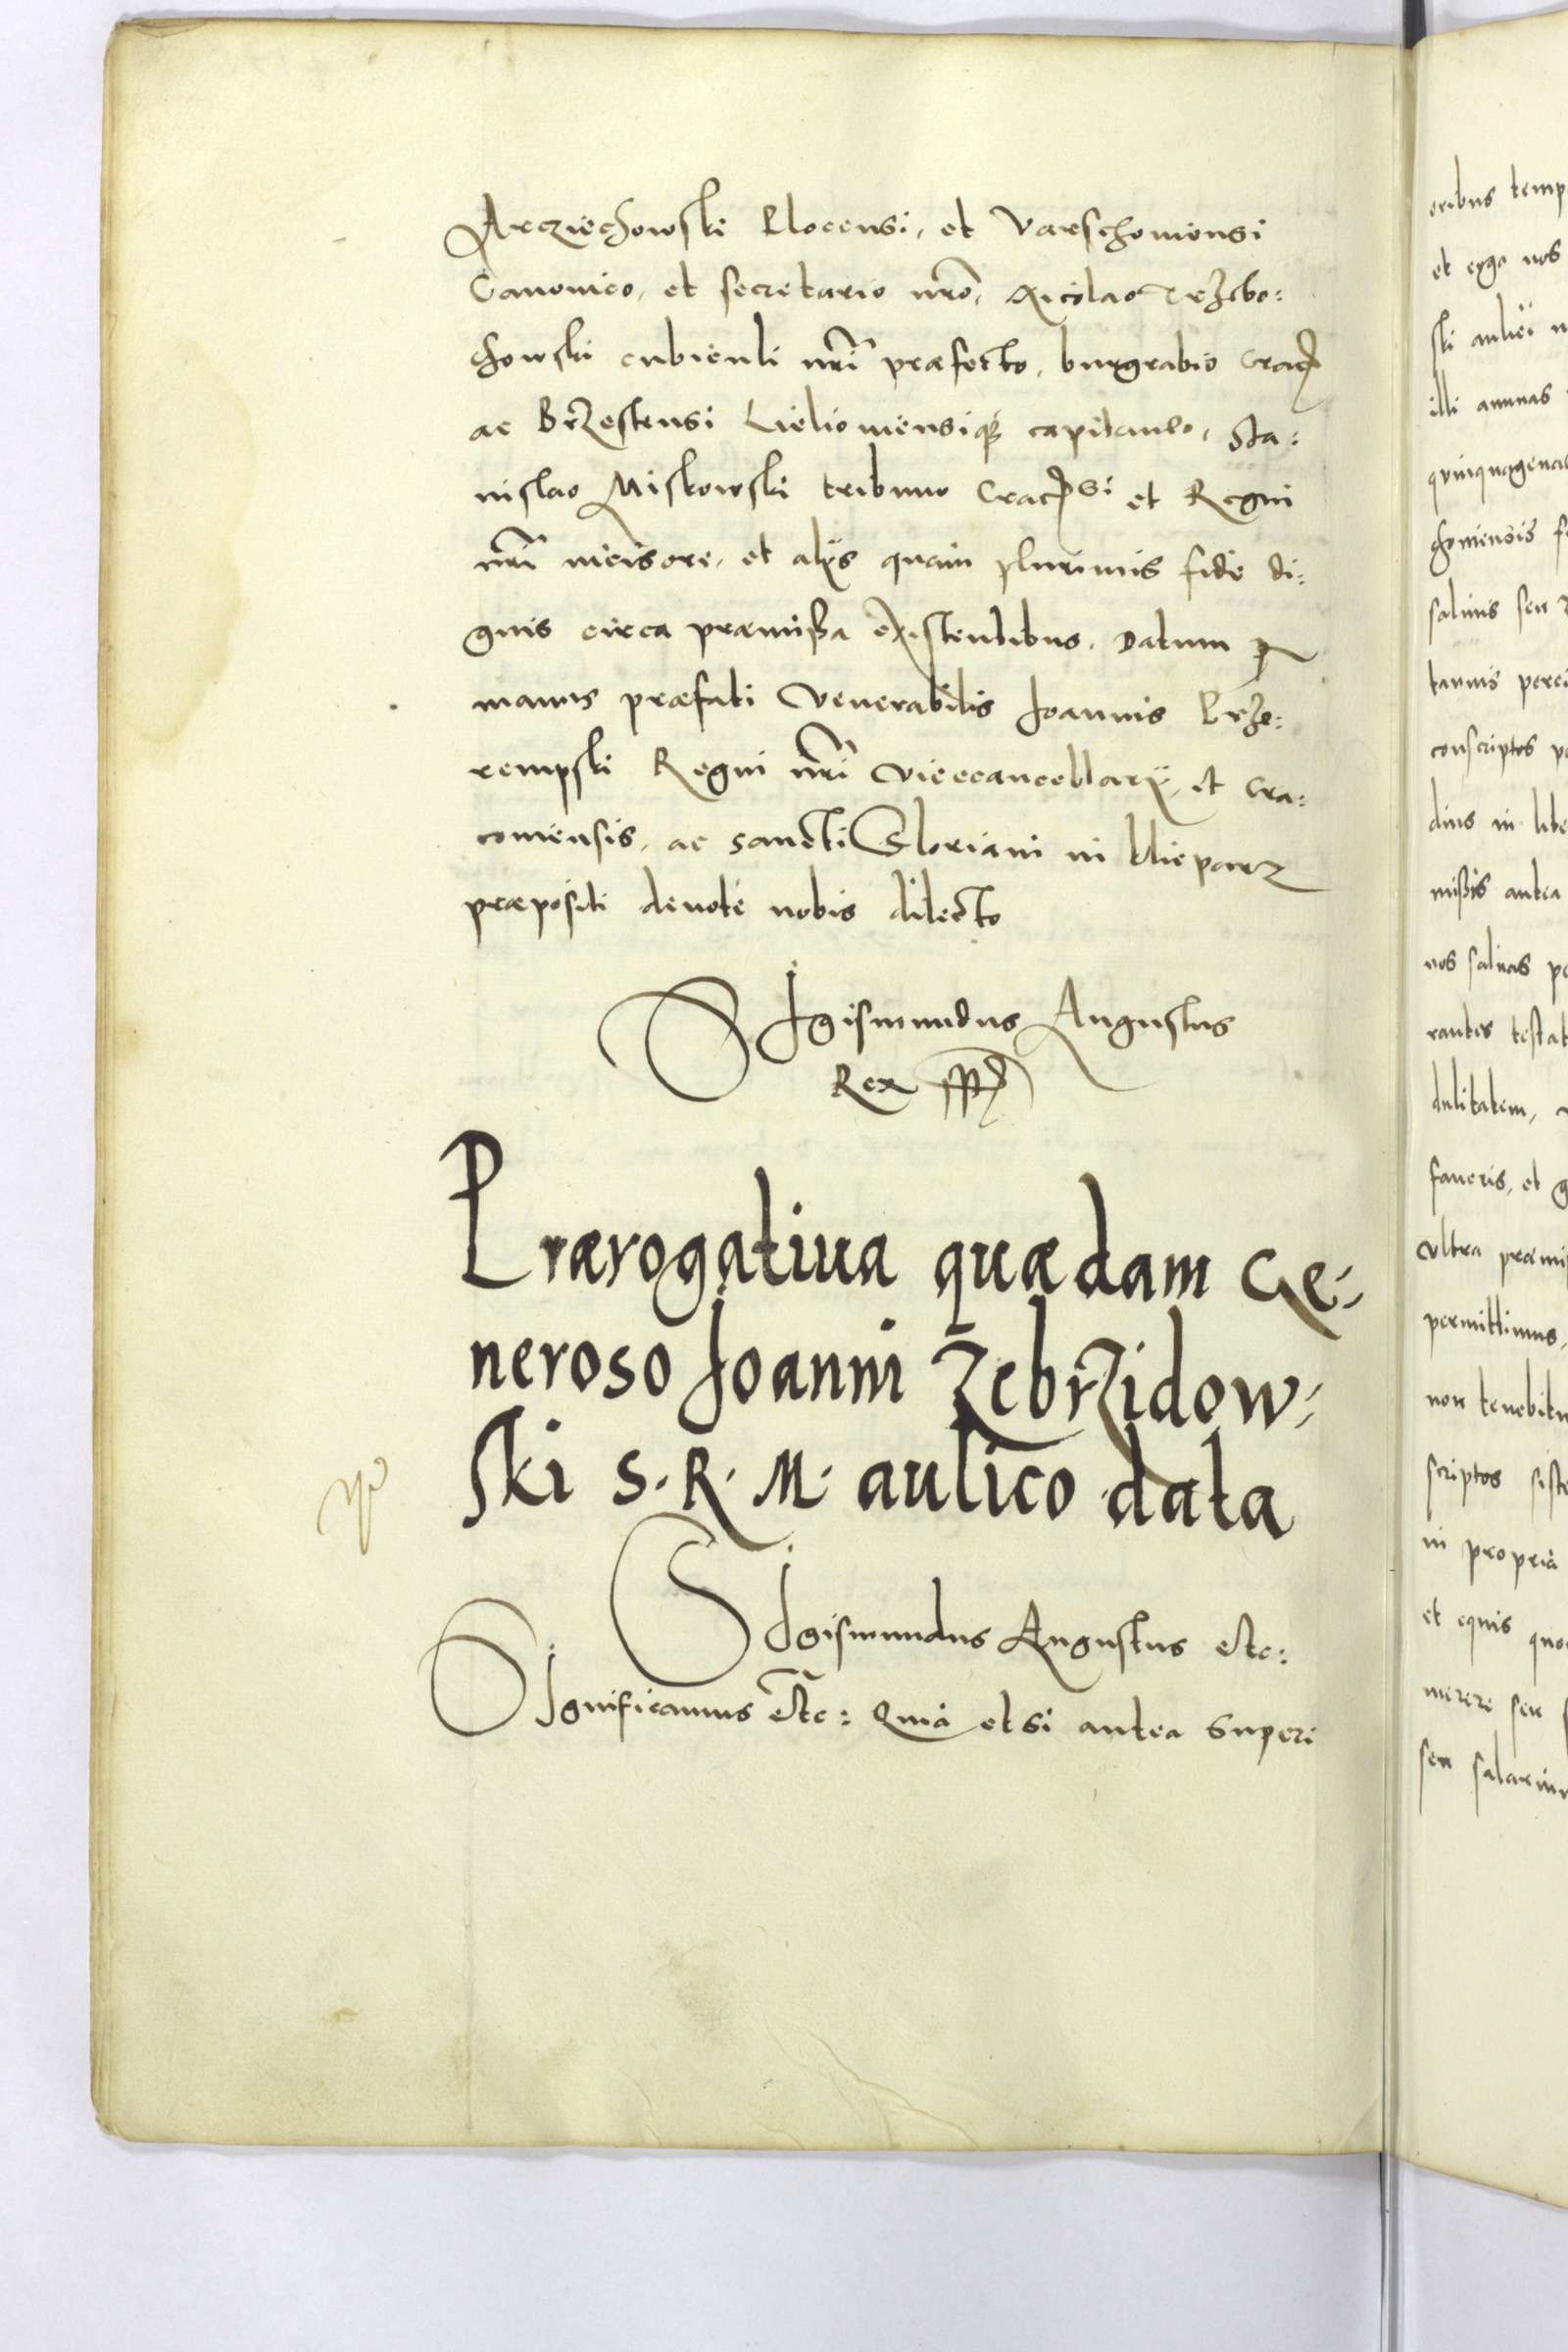 Arcziechowski Plocensi, et Varschoviensi
Canonico, et secretario nrō, Nicolao Trzebo:
chowski cubiculi nrī præfecto, burgrabio Crac̄
ac Brzestensi Lieliovensiqȝ capitaneo, Sta:
nislao Miskowski tribuno Crac̄si et Regni
nrī incisore, et alys quam plurimis fide di:
gnis circa præmißa existentibus. Datum p
manus præfati Venerabilis Joannis Prze:
rempski Regni nrī Vicecancellary, et Cra:
coviensis, ac sancti Floriani in Clieparz
præpositi devote nobis dilecto
Sigismundus Augustus
Rex
Prærogatiua quædam Ge:
neroso Joanni Zebrzidow:
ski S. R. M. aulico data
Sigismundus Augustus etc:
Significamus etc: Quia etsi antea Superi
oribus temp
et ergo nos
ski aulici n
illi annuas
quinquagenas
choviensis
salinis seu
tannis
conscriptos
dius in libe
mißis antea
nos salinas
rantes testat
dulitatem,
faveris, et g
Vltra præmi
permittimus,
non tenebitu
scriptos siste
in propria
et equis quo
merere seu
seu salarium